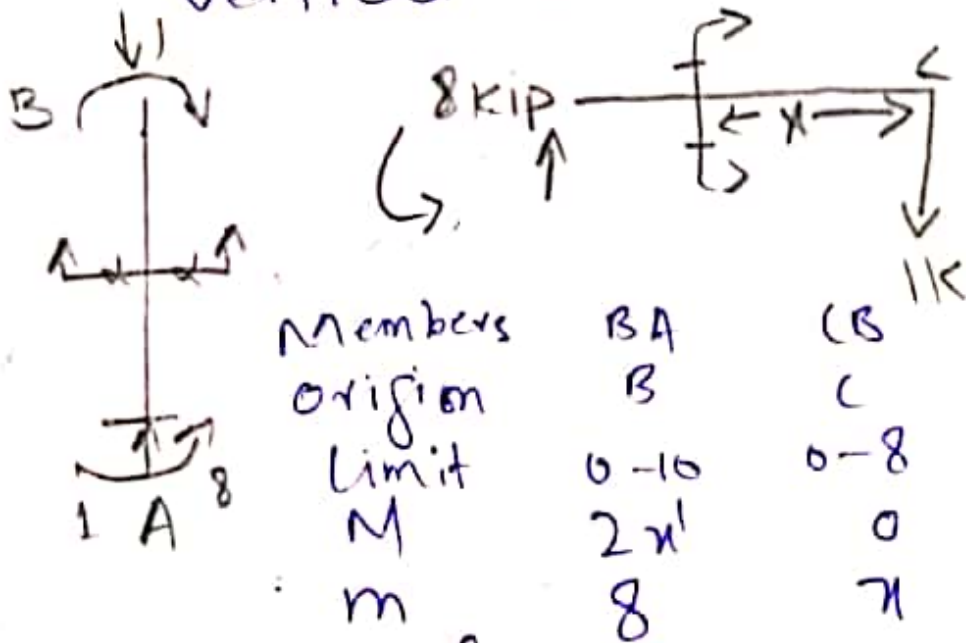 1
B
8 kip
x
C
1k
Members BA CB
origion B C
Limit 0-10 0-8
M 2x' 0
m 8 x
1 A 8